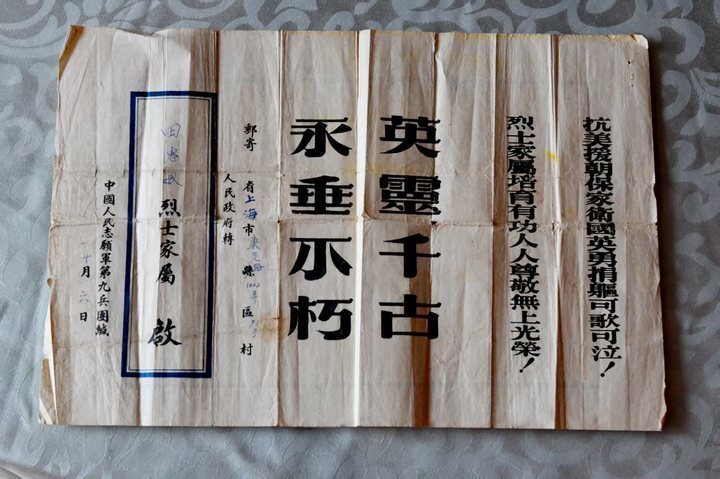 抗美援朝保家衛國英勇捐軀可歌可泣！
烈士家屬培育有功人人尊敬無上光榮！
英靈千古
永垂不朽
郵寄 省上海市 縣 區 村
人民政府轉
田 烈士家屬 啟
中國人民志願軍第九兵團緘
十月六日